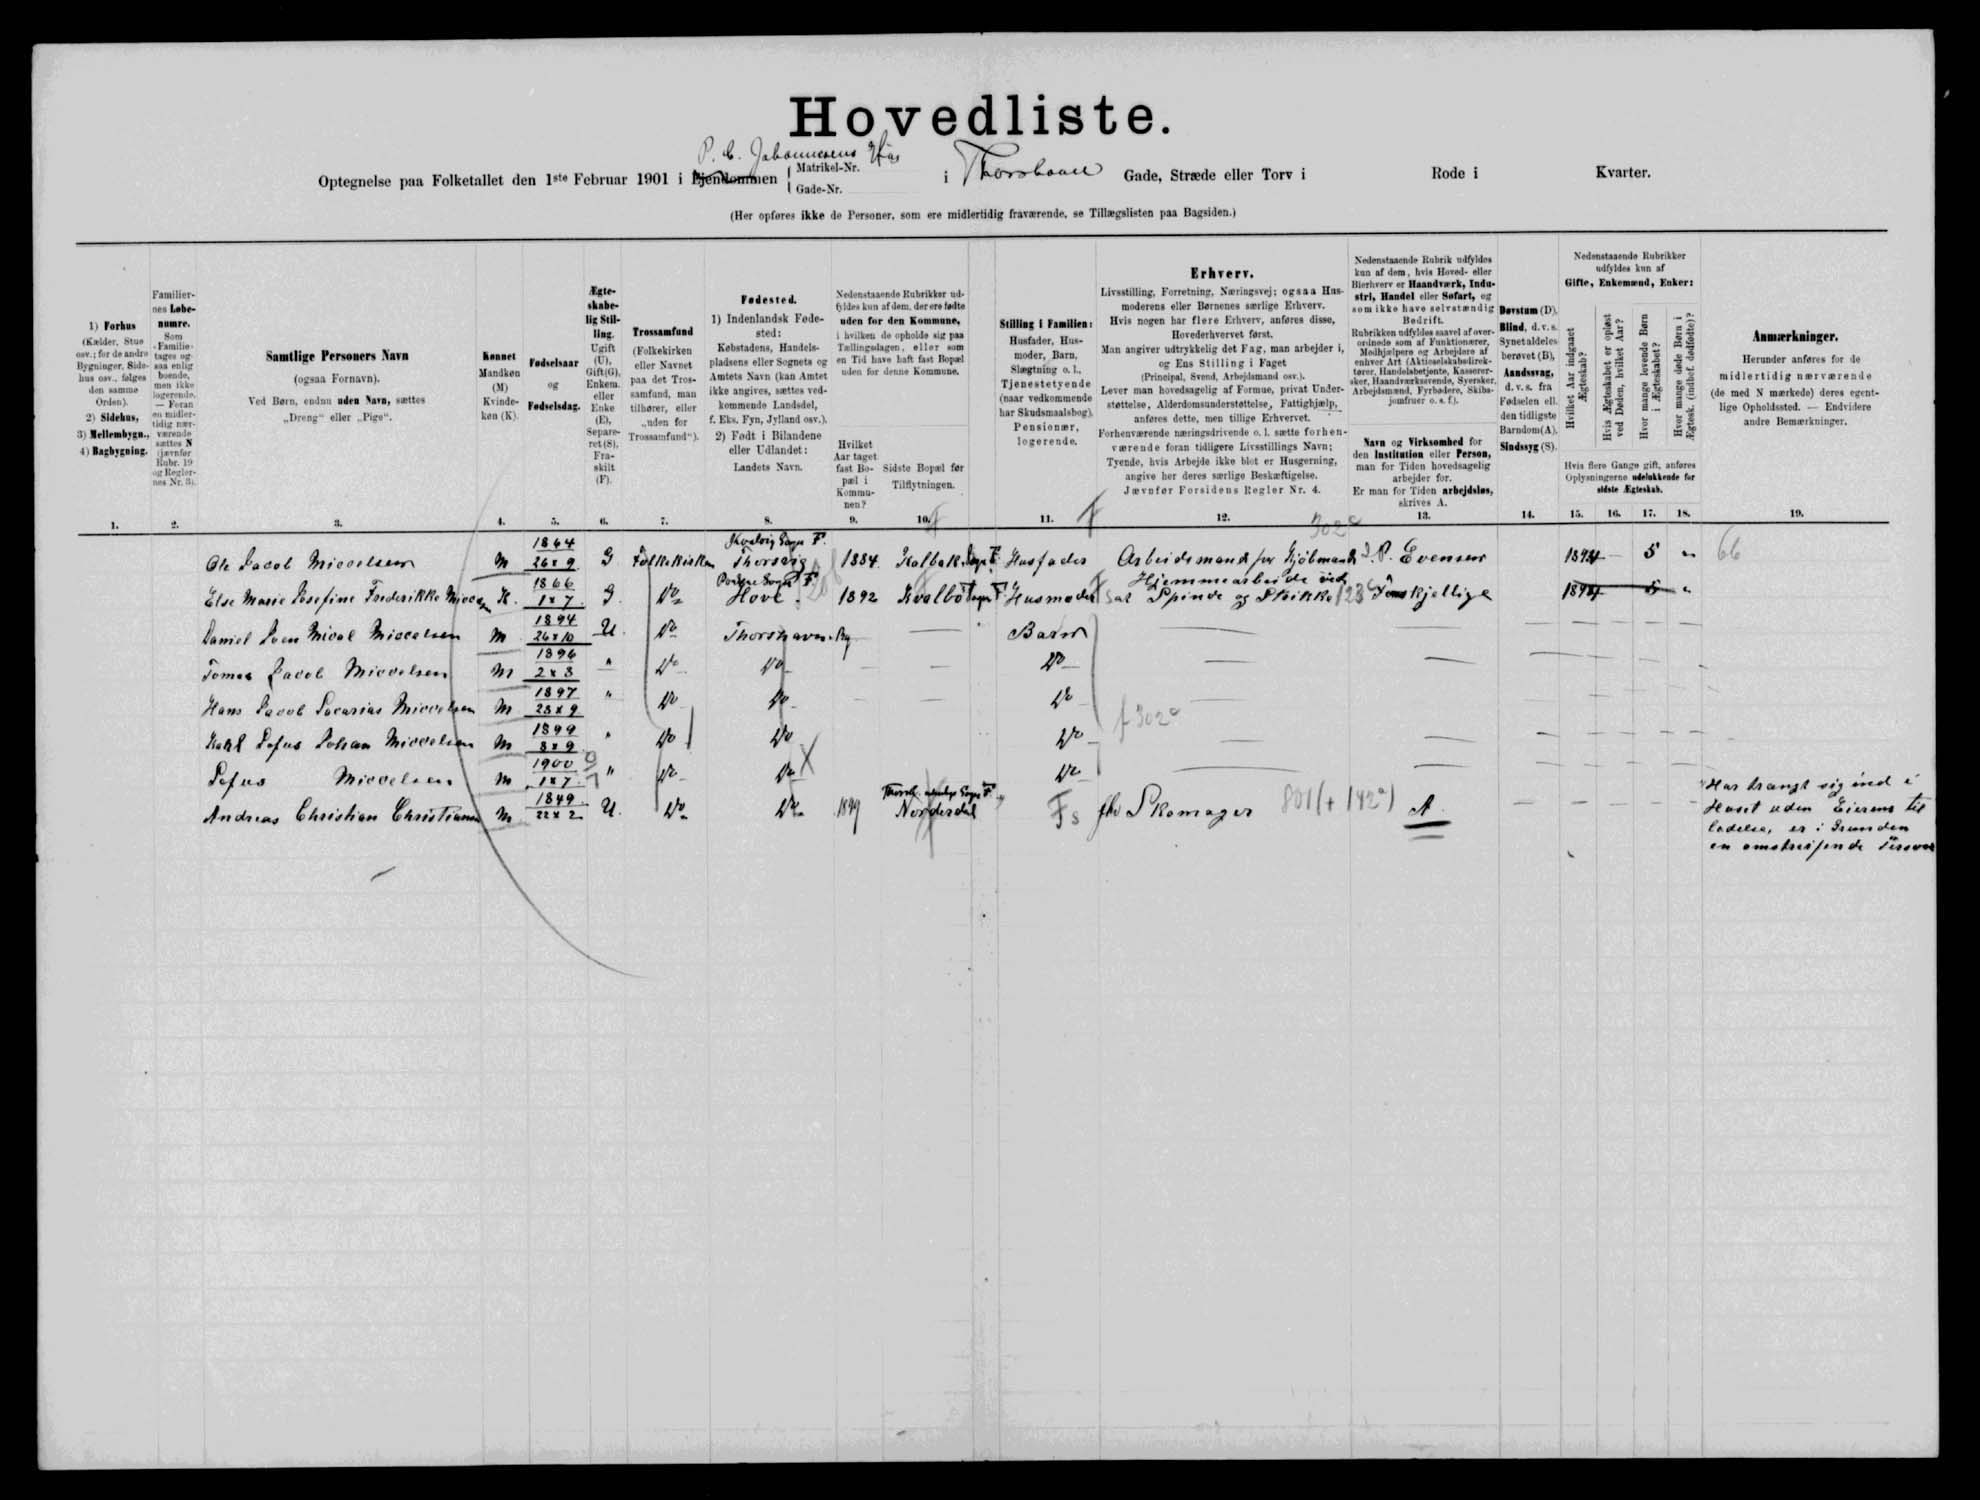 Hovedliste.
P. C. Johannesens Hus
Optegnelse paa Folketallet den 1ste Februar 1901 i Ejendommen
Matrikel-Nr.
Gade-Nr.
i Thorshavn Gade, Stræde eller Torv i
Rode i
Kvarter.
(Her opføres ikke de Personer, som ere midlertidig fraværende, se Tillægslisten paa Bagsiden.)
1) Forhus
(Kælder, Stue
osv.; for de andre
Bygninger, Side-
hus osv., følges
den samme
Orden).
2) Sidehus,
3) Mellembygn.,
4) Bagbygning.
1.
Familier-
nes Løbe-
numre.
Som
Familie
tages og-
saa enlig
boende,
men ikke
logerende.
— Foran
en midler-
tidig nær-
værende
sættes N
(jævnfør
Rubr. 19
og Regler-
nes Nr. 3).
2.
Samtlige Personers Navn
(ogsaa Fornavn).
Ved Børn, endnu uden Navn, sættes
„Dreng“ eller „Pige“.
3.
Kønnet
Mandkøn
(M)
Kvinde-
køn (K).
4.
Fødselsaar
og
Fødselsdag.
5.
Ægte-
skabe-
lig Stil-
ling.
Ugift
(U),
Gift(G),
Enkem.
eller
Enke
(E),
Separe-
ret (S),
Fra-
skilt
(F).
6.
Trossamfund
(Folkekirken
eller Navnet
paa det Tros-
samfund, man
tilhører, eller
„uden for
Trossamfund“).
7.
Fødested.
1) Indenlandsk Føde-
sted:
Købstadens, Handels-
pladsens eller Sognets og
Amtets Navn (kan Amtet
ikke angives, sættes ved-
kommende Landsdel,
f. Eks. Fyn, Jylland osv.).
2) Født i Bilandene
eller Udlandet:
Landets Navn.
8.
Nedenstaaende Rubrikker ud-
fyldes kun af dem, der ere fødte
uden for den Kommune,
i hvilken de opholde sig paa
Tællingsdagen, eller som
en Tid have haft fast Bopæl
uden for denne Kommune.
Hvilket
Aar taget
fast Bo-
pæl i
Kommu-
nen?
9.
Sidste Bopæl før
Tilflytningen.
10.
Stilling i Familien:
Husfader, Hus-
moder, Barn,
Slægtning o. l.,
Tjenestetyende
(naar vedkommende
har Skudsmaalsbog),
Pensionær,
logerende.
11.
Erhverv.
Livsstilling, Forretning, Næringsvej; ogsaa Hus-
moderens eller Børnenes særlige Erhverv.
Hvis nogen har flere Erhverv, anføres disse,
Hovederhvervet først.
Man angiver udtrykkelig det Fag, man arbejder i,
og Ens Stilling i Faget
(Principal, Svend, Arbejdsmand osv.).
Lever man hovedsagelig af Formue, privat Under-
støttelse, Alderdomsunderstøttelse, Fattighjælp,
anføres dette, men tillige Erhvervet.
Forhenværende næringsdrivende o. l. sætte forhen-
værende foran tidligere Livsstillings Navn;
Tyende, hvis Arbejde ikke blot er Husgerning,
angive her deres særlige Beskæftigelse.
Jævnfør Forsidens Regler Nr. 4.
12.
Nedenstaaende Rubrik udfyldes
kun af dem, hvis Hoved- eller
Bierhverv er Haandværk, Indu-
stri, Handel eller Søfart, og
som ikke have selvstændig
Bedrift.
Rubrikken udfyldes saavel af over-
ordnede som af Funktionærer,
Medhjælpere og Arbejdere af
enhver Art (Aktieselskabsdirek-
tører, Handelsbetjente, Kasserer-
sker, Haandværkssvende, Syersker,
Arbejdsmænd, Fyrbødere, Skibs-
jomfruer o. s. f.).
Navn og Virksomhed for
den Institution eller Person,
man for Tiden hovedsagelig
arbejder for.
Er man for Tiden arbejdsløs,
skrives A.
13.
Døvstum (D),
Blind, d. v. s.
Synet aldeles
berøvet (B),
Aandssvag,
d. v. s. fra
Fødselen ell.
den tidligste
Barndom (A).
Sindssyg (S).
14.
Nedenstaaende Rubrikker
udfyldes kun af
Gifte, Enkemænd, Enker:
Hvilket Aar indgaaet
Ægteskab?
Hvis Ægteskabet er opløst
ved Døden, hvilket Aar?
Hvor mange levende Børn
i Ægteskabet?
Hvor mange døde Børn i
Ægtesk. (indbef. dødfødte)?
Hvis flere Gange gift, anføres
Oplysningerne udelukkende for
sidste Ægteskab.
15. 16. 17. 18.
Anmærkninger.
Herunder anføres for de
midlertidig nærværende
(de med N mærkede) deres egent-
lige Opholdssted. — Endvidere
andre Bemærkninger.
19.
Ole Jacob Miccelsen M 1864 26 x 9 G Folkekirken Thorsvig 1884 Kalbak Sogn F. Husfader Arbeidsmand for Kjøbmand J. P. Evensen 302a 5 " 66
Else Marie Josefine Frederikke K. 1866 1 x 7 G. Do Hove 1892 Kvalbø Sogn F Husmoder Hjemmearbeide ved Spinde og Strikke "
Daniel Sven Micael Miccelsen M 1894 26 x 10 U Do Thorshavn By — Barn
Tomas Jacob Miccelsen M 1896 2 x 3 " Do Do Do
Hans Jacob Sacarias Miccelsen M 1897 23 x 9 " Do Do Do
Karl Sofus Johan Miccelsen M 1899 8 x 9 " Do Do Do
f 302a
Sofus Miccelsen M 1900 1 x 7 " Do Do Do
Andreas Christian Christiansen M 1849 22 x 2 U. Do Do 1899 Nordredal Fs fhv Skomager 801 (+ 142a) A
Har trangt sig ind i
Huset uden Eierens til
ladelse, er i Grunden
en omstreifende Person